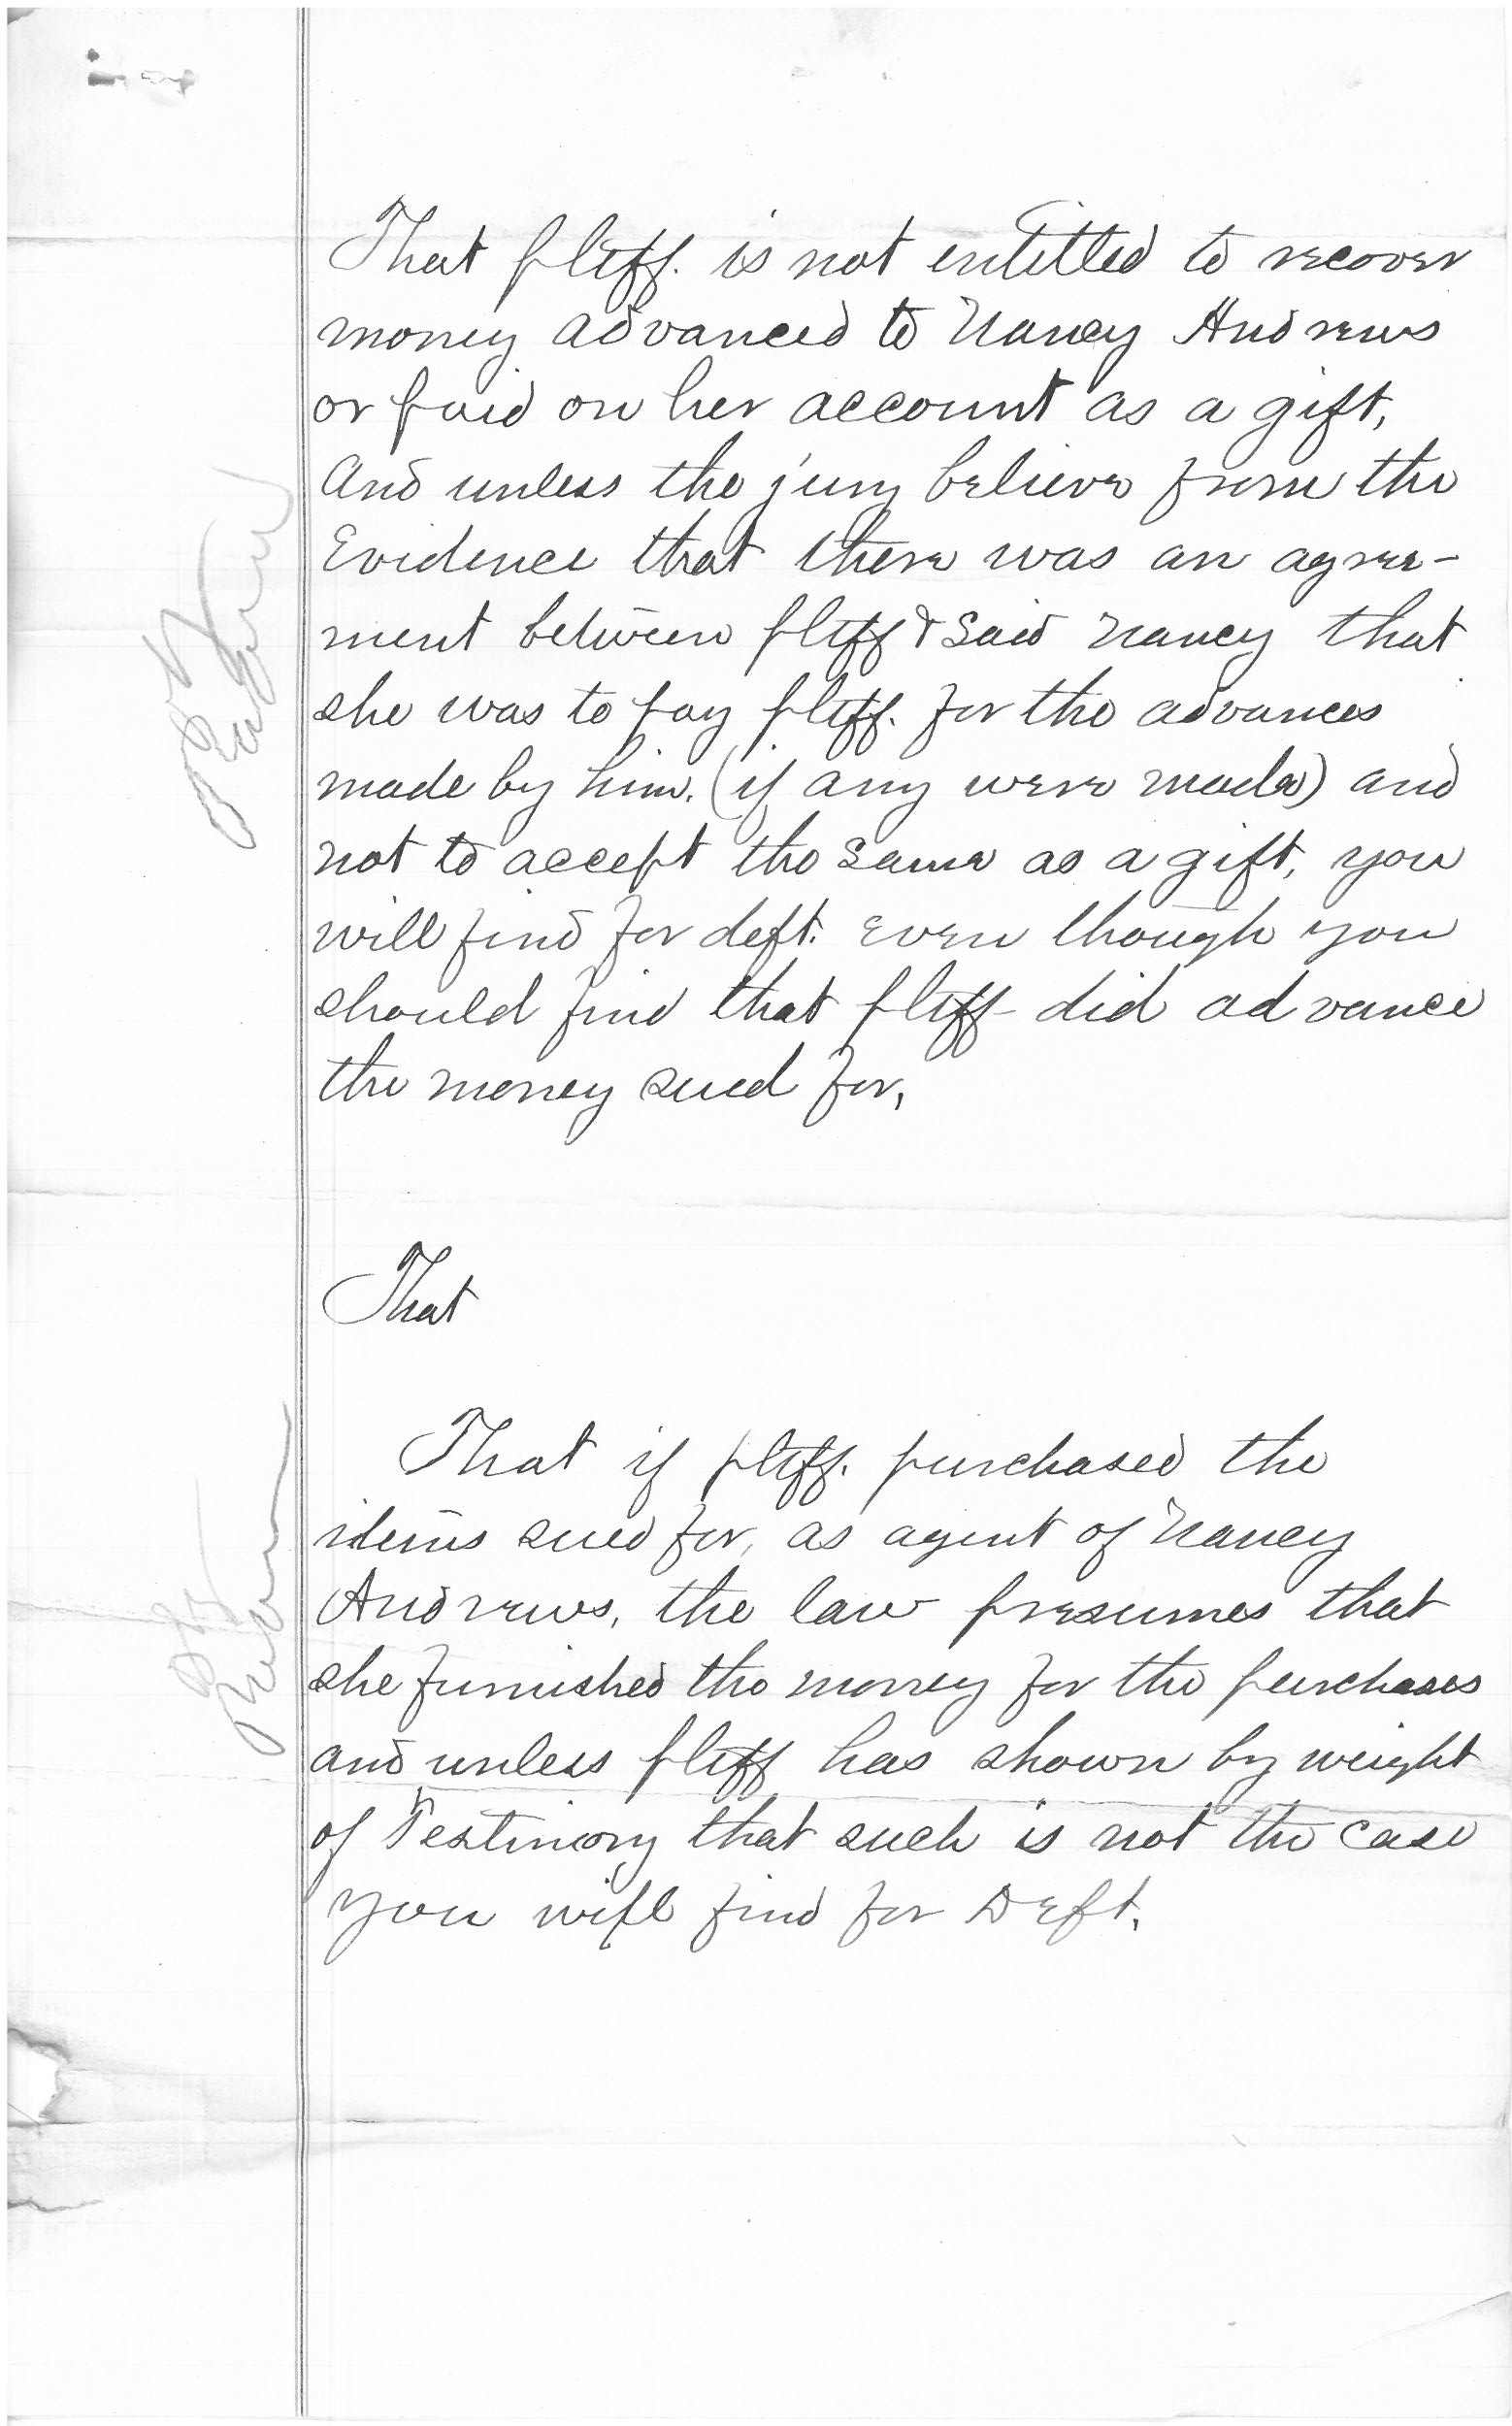 That pltff. is not entitled to recover
money advanced to Nancy Andrews
or paid on her account as a gift,
And unless the jury believe from the
Evidence that there was an agree-
ment between pltff & said Nancy that
she was to pay pltff. for the advances
made by him. (if any were made) and
not to accept the same as a gift, you
will find for deft. even though you
should find that pltff did advance
the money sued for,
That
That if pltff. purchased the
items sued for, as agent of Nancy
Andrews, the law presumes that
she furnished the money for the purchases
and unless pltff has shown by weight
of Testimony that such is not the case
you will find for Deft.